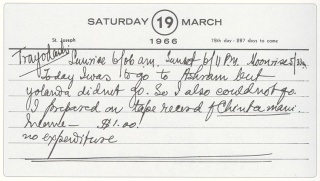 SATURDAY 19 MARCH
St. Joseph 1966 78th day - 287 days to come
Trayodashi Sunrise 6/06 am. Sunset 6/11 P.M. Moonrise 5/
Today I was to go to Ashram but
yolanda didnt go. So I also could not go.
I prepared on tape record of Chintamani.
Income — $1.00.
no expenditure